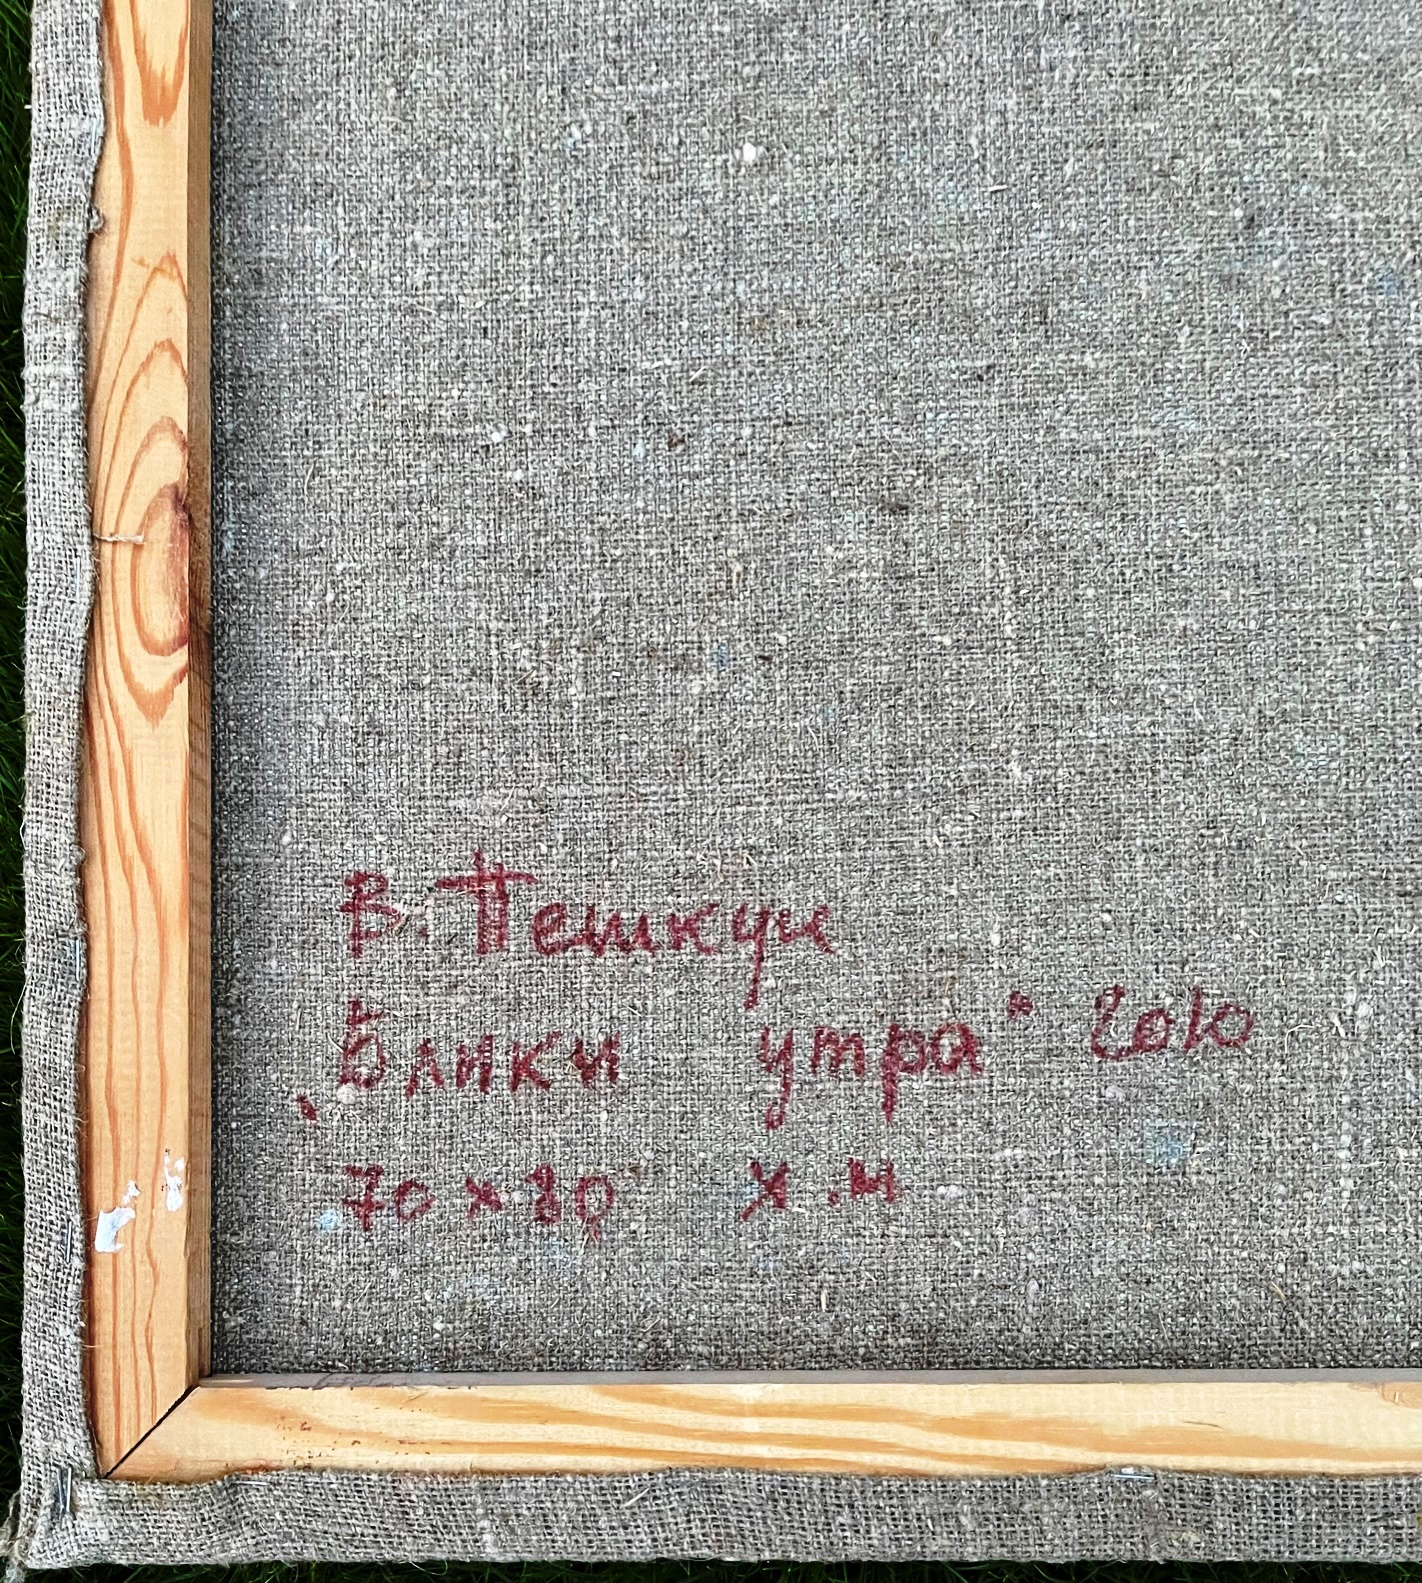 В. Пешкун
„Блики утра" 2010
70 х 80 х.м